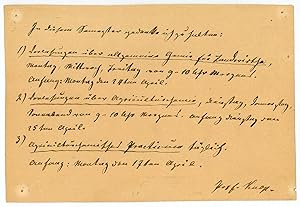 In diesem Semester gedenke ich zu halten:
1) Vorlesungen über allgemeine Chemie für Landwirthe,
Montag, Mittwoch, Freitag von 9-10 Uhr Morgens.
Anfang: Montag den 24ten April.
2) Vorlesungen über Agriculturchemie, Dienstag, Donnerstag,
Sonnabend von 9-10 Uhr Morgens. Anfang Dienstag den
25ten April.
3) Agriculturchemisches Practicum täglich.
Anfang: Montag den 17ten April.
Prof. Knop.